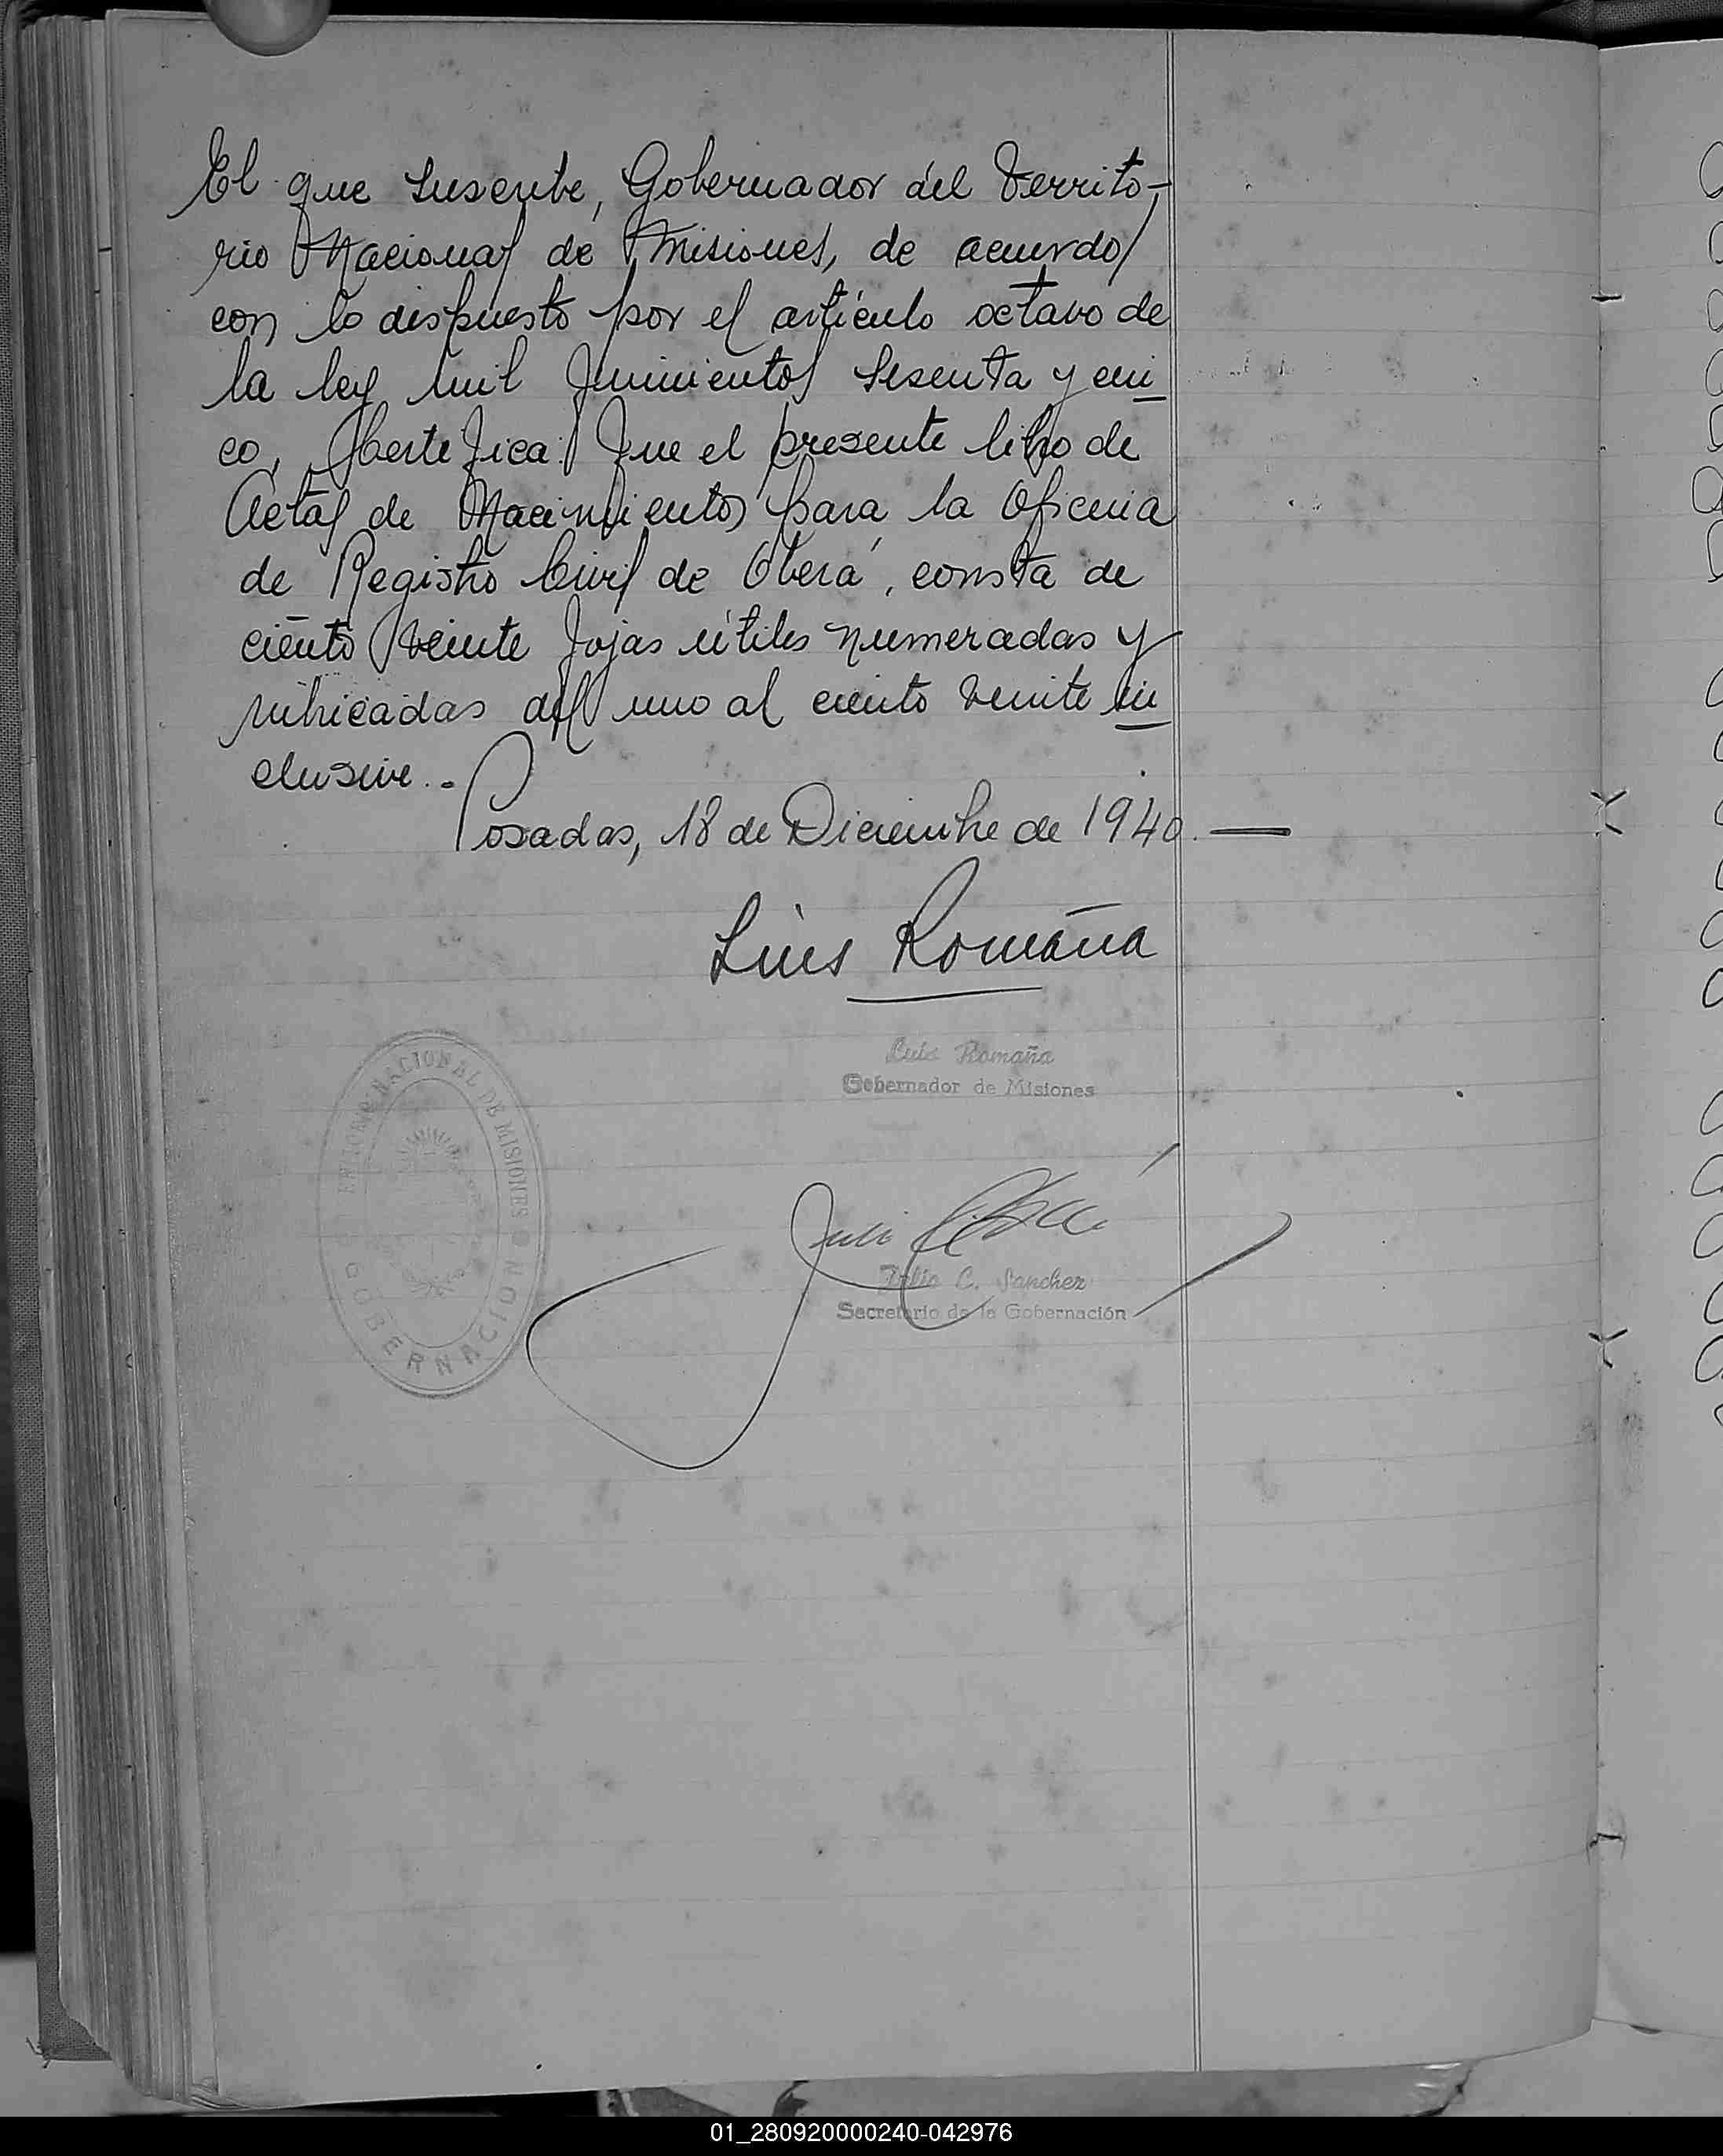 El que suscribe, Gobernador del Territo-
rio Nacional de Misiones, de acuerdo
con lo dispuesto por el artículo octavo de
la ley mil quinientos sesenta y cin
co, Certifica: Que el presente libro de
Actas de Nacimientos para la Oficina
de Registro Civil de Oberá, consta de
ciento veinte fojas útiles numeradas y
rubricadas del uno al ciento veinte in
clusive.-
Posadas, 18 de Diciembre de 1940.—
Luis Romaña
Luis Romaña
Gobernador de Misiones
TERRITORIO NACIONAL DE MISIONES
GOBERNACION
Julio C. Sanchez
Secretario de la Gobernación
01_280920000240-042976